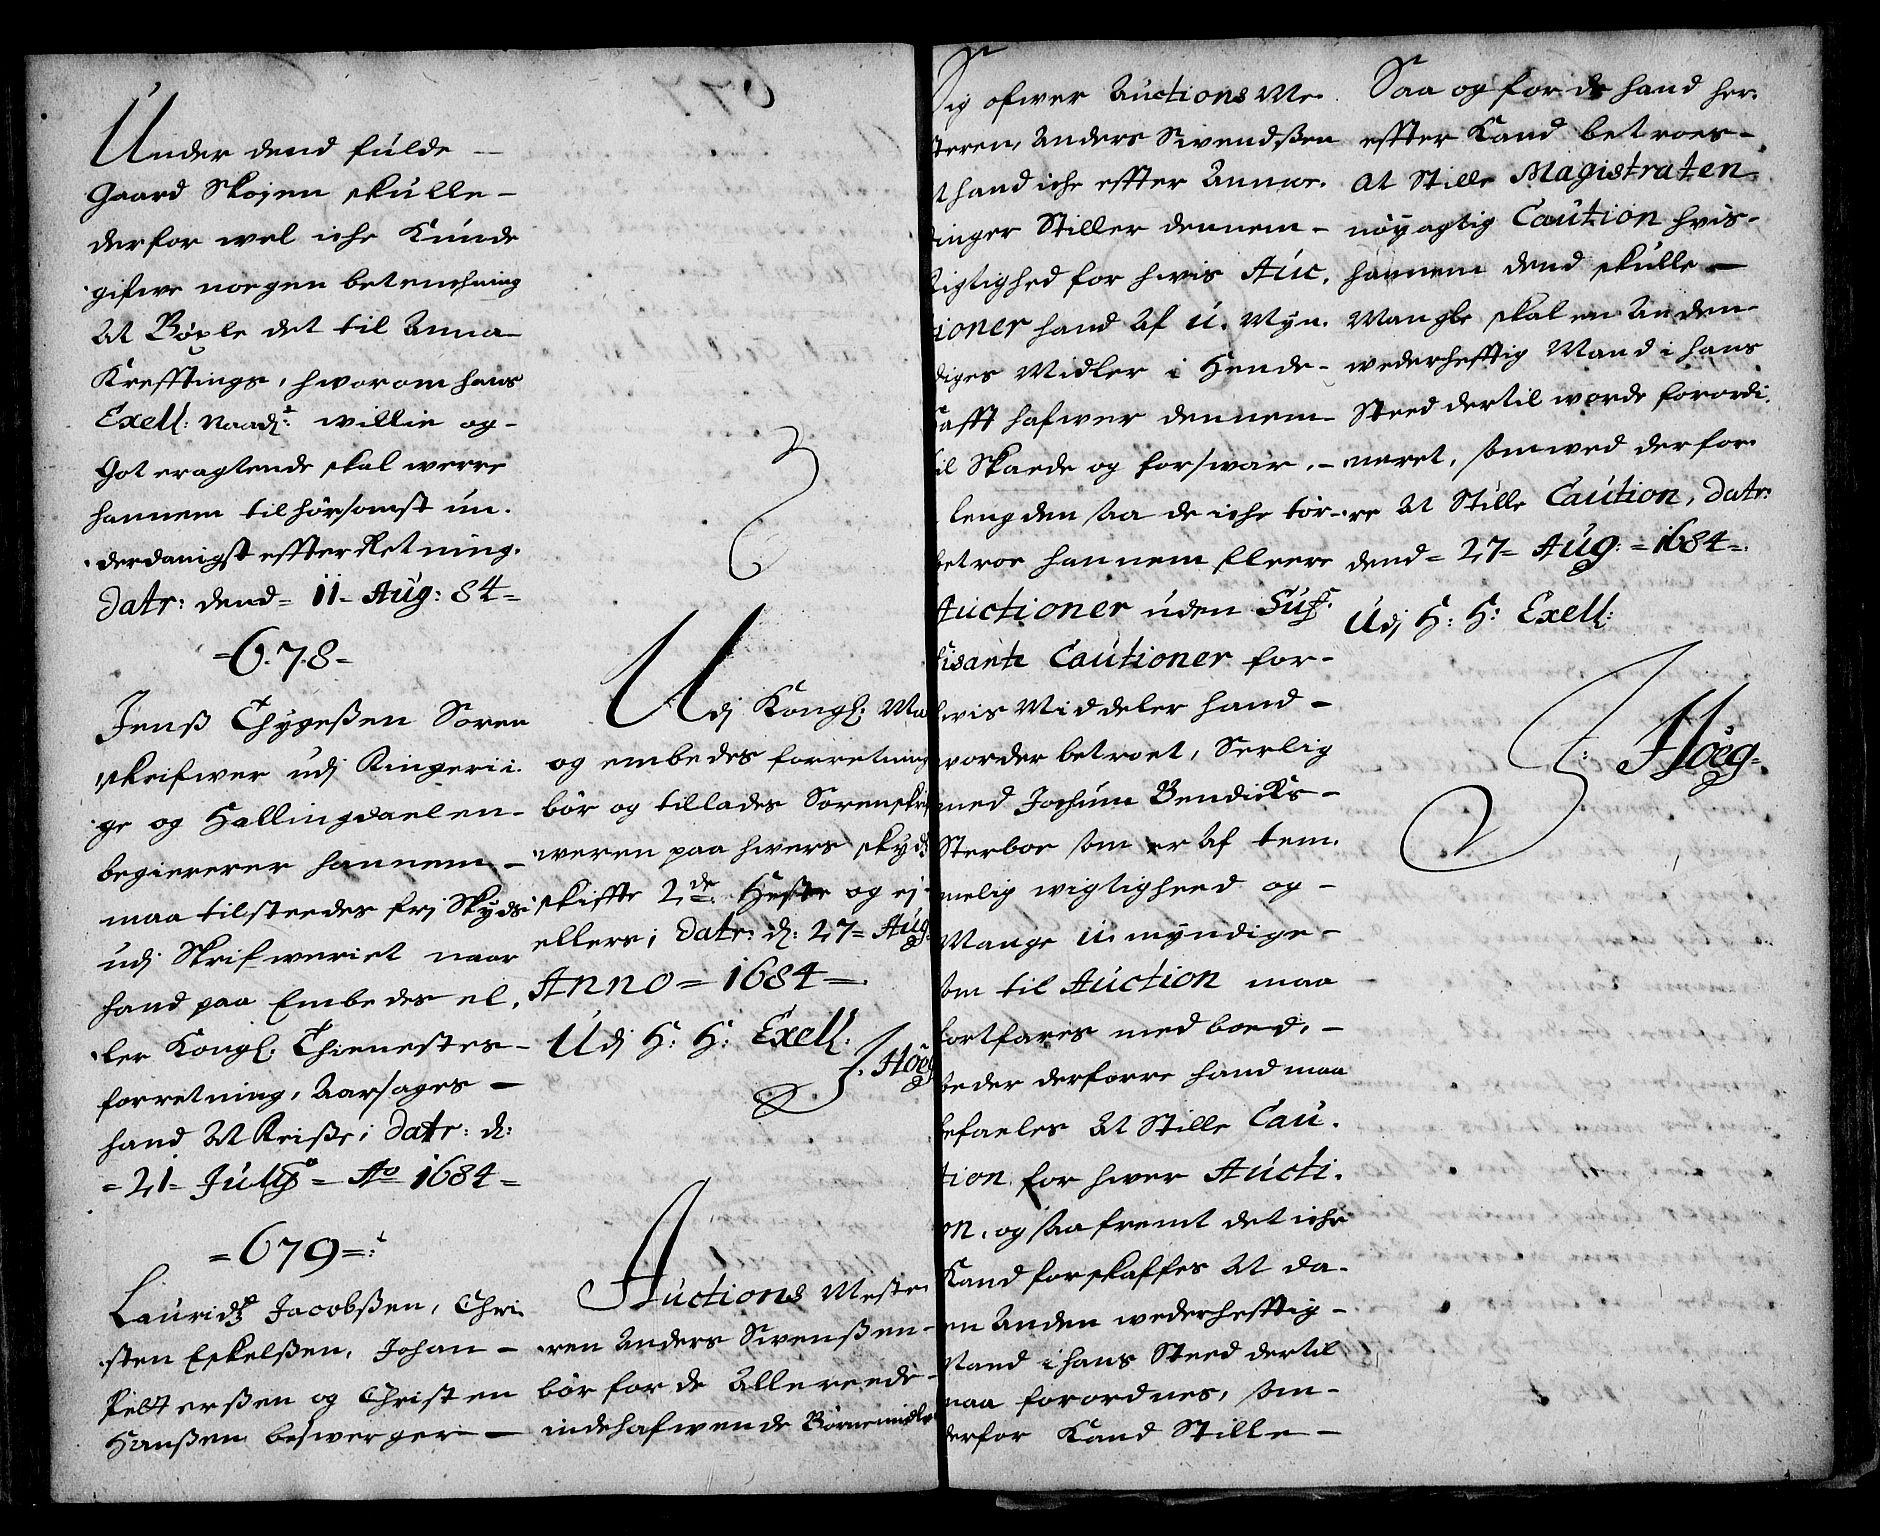 Under dend fulde
Gaard Skojen skulle
derfor wel iche Kunde
gifwe noegen betenchning
At Böxle det til Anna
Krefftings, hworom hans
Exell: Naad: willie og
Got eragtende skal werre
hannem tilhörsomst un.
derdanigst effterRetning.
Datr: dend 11 Aug: 84
678
Jenss Thygessen Soren
skrifwer udj Ringerii.
ge og Hallingdaelen
begiererer hannem
maa tilsteedes frj Skyds
udj Skrifweriet naar
hand paa Embedes el.
ler Kongl: Thienestes
forretning, Aarsages
hand At Reisse; Datr: d:
21 July Ao 1684
679
Lauridtz Jacobssen, Chri
sten Eskelssen, Johan
Petterssen og Christen
Hanssen beswerger
Udj Kongl: Ma
og embedes forretning
bör og tillades Sorenskri
weren paa hwers skyds
skiffte 2de Heste og ej
ellers; Datr: d: 27 Aug
Anno 1684
Udj H: H: Exell:
J. Höeg
Auctions Meste
ren Anders Swenssen
bör for de Allereede
indehafwende Börnemidle
Sig ofwer Auctions Me
steren, Anders Swendssen
t hand iche effter Anmoe.
dinger Stiller dennem
Rigtighed for hwis Auc.
tioner hand Af U. Myn.
diges Midler i Hende
hafft hafwer dennem
til Skaede og forswar,
lengden saa de iche tör
betroe hannem fleere
Auctioner uden Suf.
fisante Cautioner for
hwis Middeler hand
vorder betroet, Serlig
med Jochum Bendicks
Sterboe som er Af tem.
melig wigtigheed og
Mange u. myndige
som til Auction maa
fortfares med boed,
beder derforre hand maa
befaeles At Stille Cau.
tion for hwer Aucti.
on, og saafremt det iche
Kand forskaffes At da
en Anden wederhefftig
Mand i hans Steed dertil
maa forordnes, som
derfor Kand Stille
Saa og for ds hand her.
effter Kand betroes
At Stille Magistraten
nöyagtig Caution hvis
hannem dend skulle
Mangle skal en Anden
wederhefftig Mand i hans
Steed dertil worde forordi.
neret, som wed derfor
re At Stille Caution, Datr:
dend 27 Aug: 1684
Udj H: H: Exell:
J: Höeg